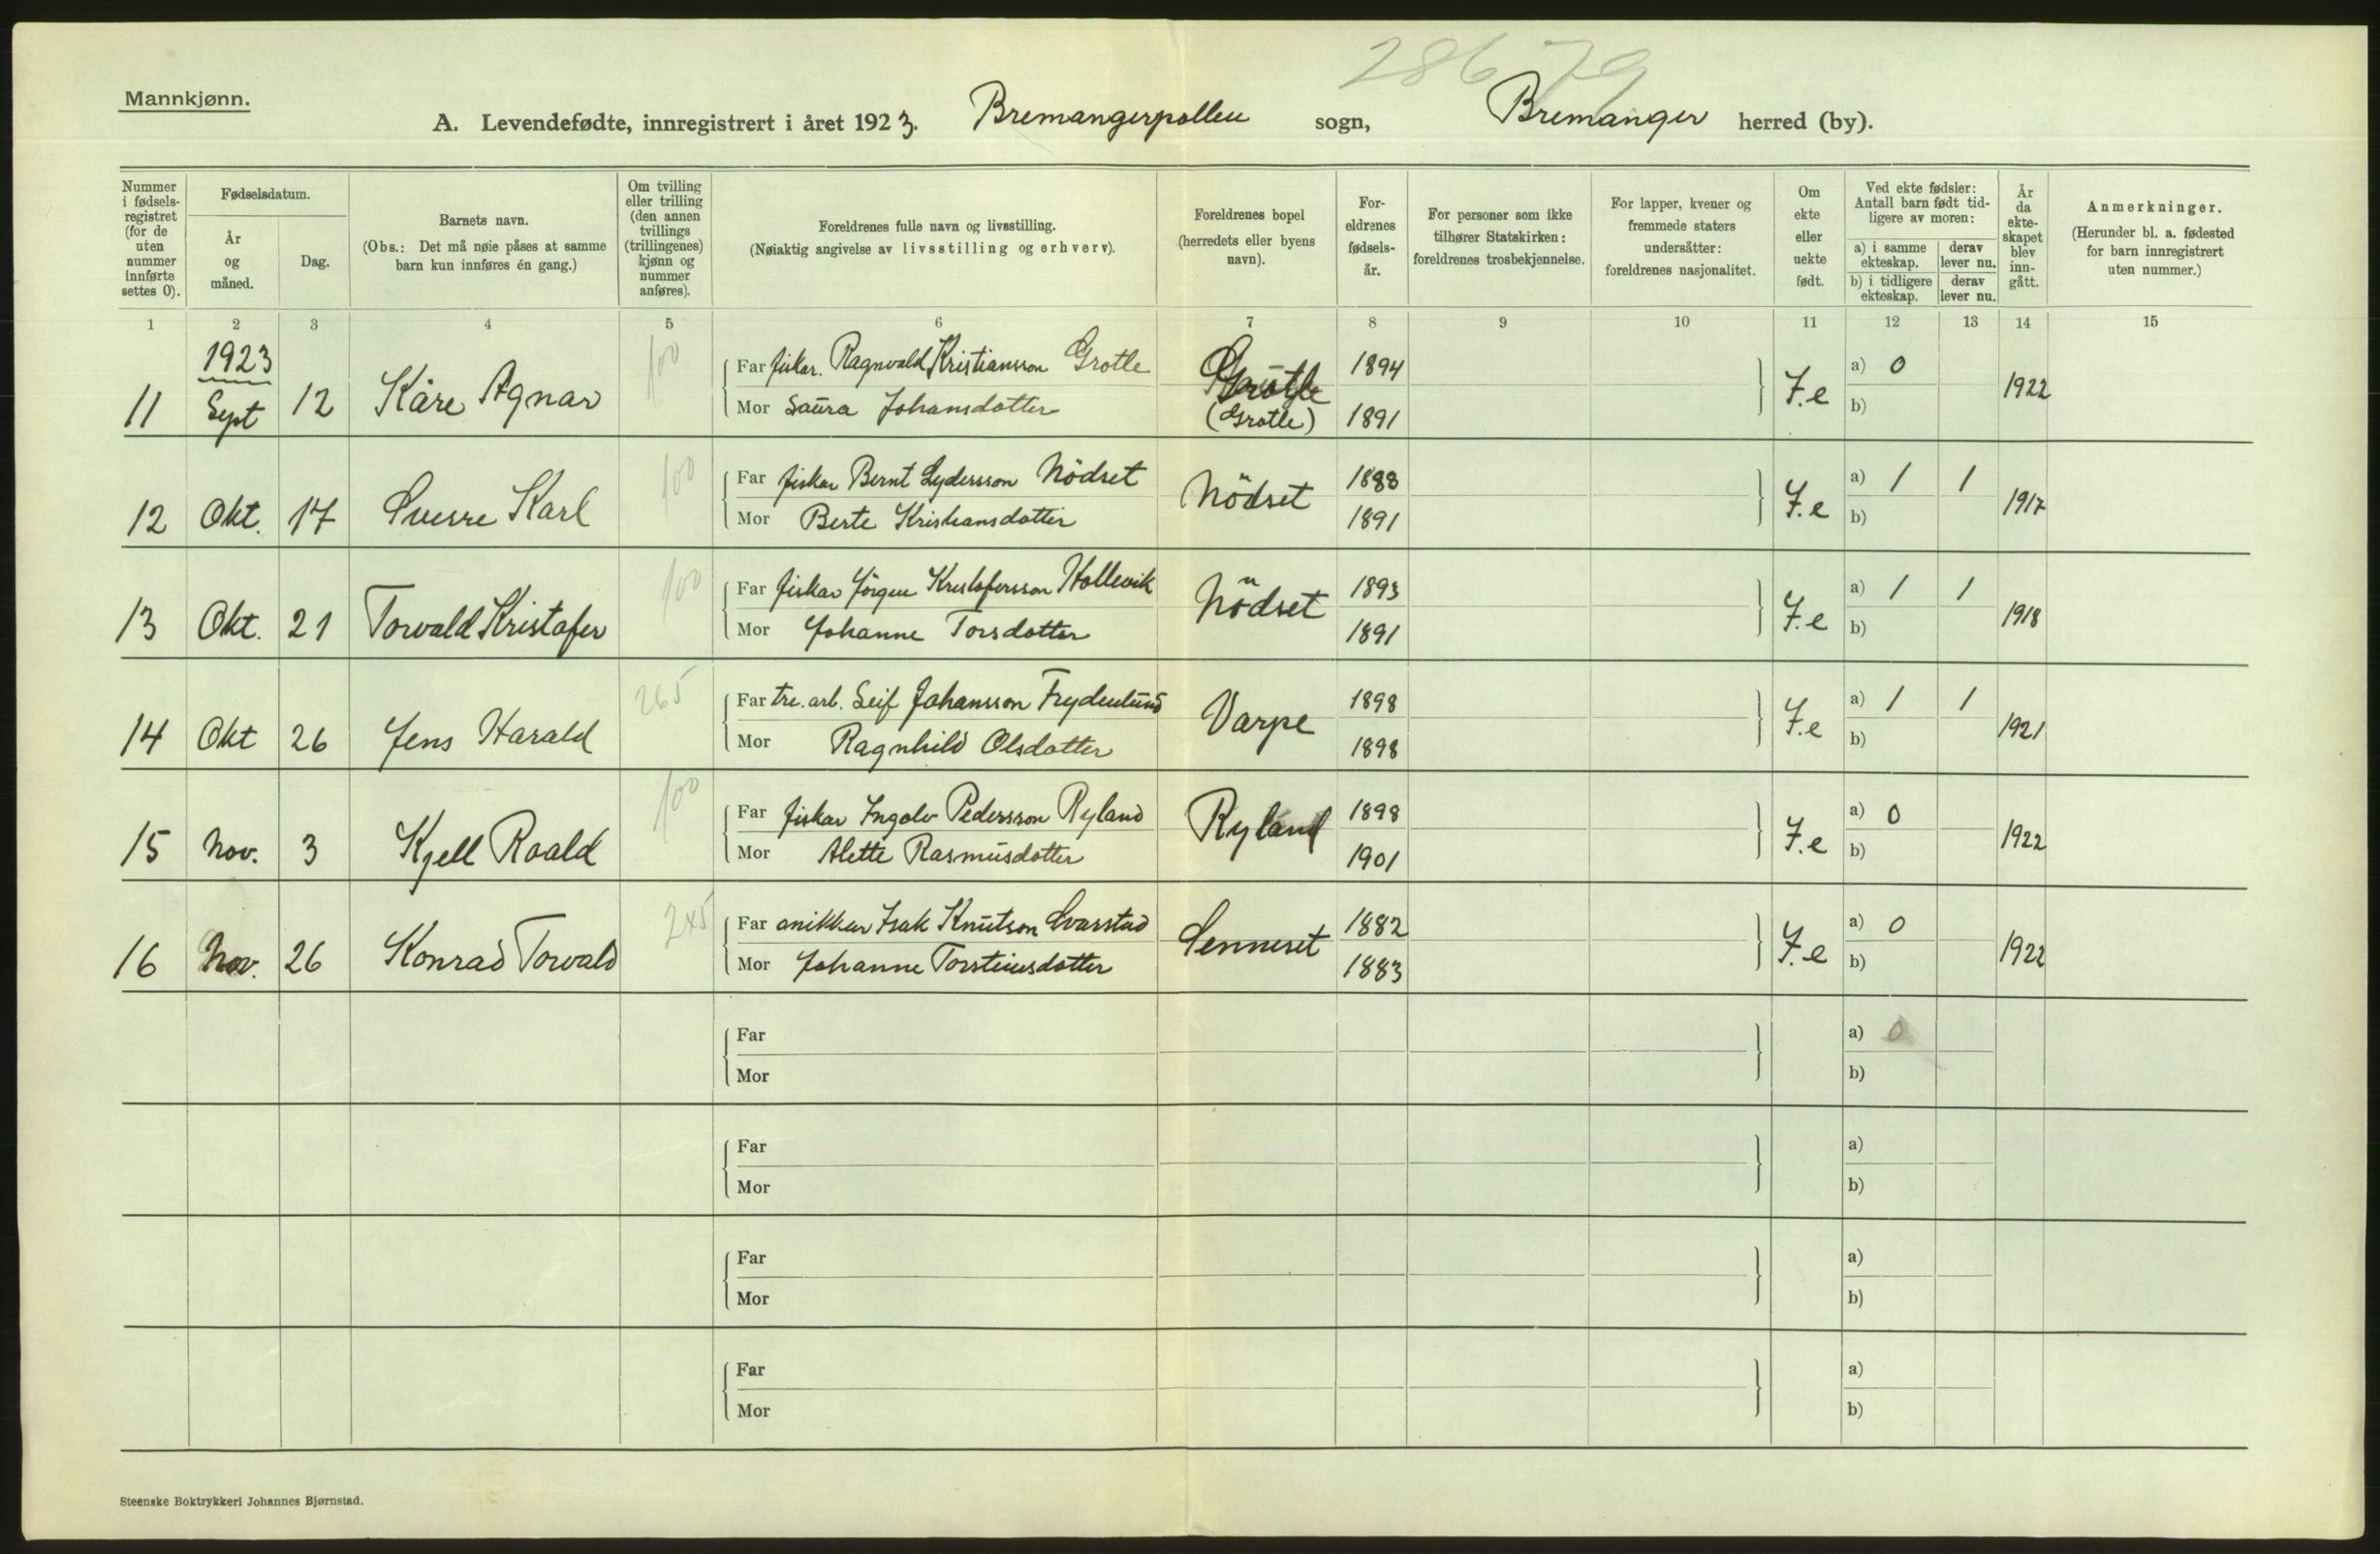 28679
Mannkjønn.
A. Levendefødte, innregistrert i året 1923. Bremangerpollen sogn, Bremanger herred (by).
Nummer i fødsels-registret (for de uten nummer innførte settes 0).
Fødselsdatum.
År og måned.
Dag.
Barnets navn.
(Obs.: Det må nøie påses at samme barn kun innføres én gang.)
Om tvilling eller trilling (den annen tvillings (trillingenes) kjønn og nummer anføres).
Foreldrenes fulle navn og livsstilling.
(Nøiaktig angivelse av livsstilling og erhverv).
Foreldrenes bopel (herredets eller byens navn).
For-eldrenes fødsels-år.
For personer som ikke tilhører Statskirken: foreldrenes trosbekjennelse.
For lapper, kvener og fremmede staters undersåtter: foreldrenes nasjonalitet.
Om ekte eller uekte født.
Ved ekte fødsler: Antall barn født tid-ligere av moren:
a) i samme ekteskap.
derav lever nu.
b) i tidligere ekteskap.
derav lever nu.
År da ekte-skapet blev inn-gått.
Anmerkninger.
(Herunder bl. a. fødested for barn innregistrert uten nummer.)
1 2 3 4 5 6 7 8 9 10 11 12 13 14 15
1923
11 Sept 12 Kåre Agnar 100
Far fiskar. Ragnvald Kristiansson Grotle Grotle 1894 F.e a) 0 1922
Mor Laura Johansdotter (Grotle) 1891 b)
12 Okt. 17 Sverre Karl 100
Far fiskar Bernt Lydersson Nödset Nödset 1888 F.e a) 1 1 1917
Mor Berte Kristiansdotter 1891 b)
13 Okt. 21 Torvald Kristofer 100
Far fiskar Jörgen Kristofersson Hollevik Nödset 1893 F.e a) 1 1 1918
Mor Johanne Torsdotter 1891 b)
14 Okt 26 Jens Harald 265
Far tre.arb. Leif Johansson Frydenlund Varpe 1898 F.e a) 1 1 1921
Mor Ragnhild Olsdotter 1898 b)
15 Nov. 3 Kjell Roald 100
Far fiskar Ingolv Pedersson Ryland Ryland 1898 F.e a) 0 1922
Mor Alette Rasmusdotter 1901 b)
16 Nov. 26 Konrad Torvald 245
Far snikkar Isak Knutson Svarstad Senneset 1882 F.e a) 0 1922
Mor Johanne Torsteinsdotter 1883 b)
Far a) 0
Mor b)
Far a)
Mor b)
Far a)
Mor b)
Far a)
Mor b)
Steenske Boktrykkeri Johannes Bjørnstad.